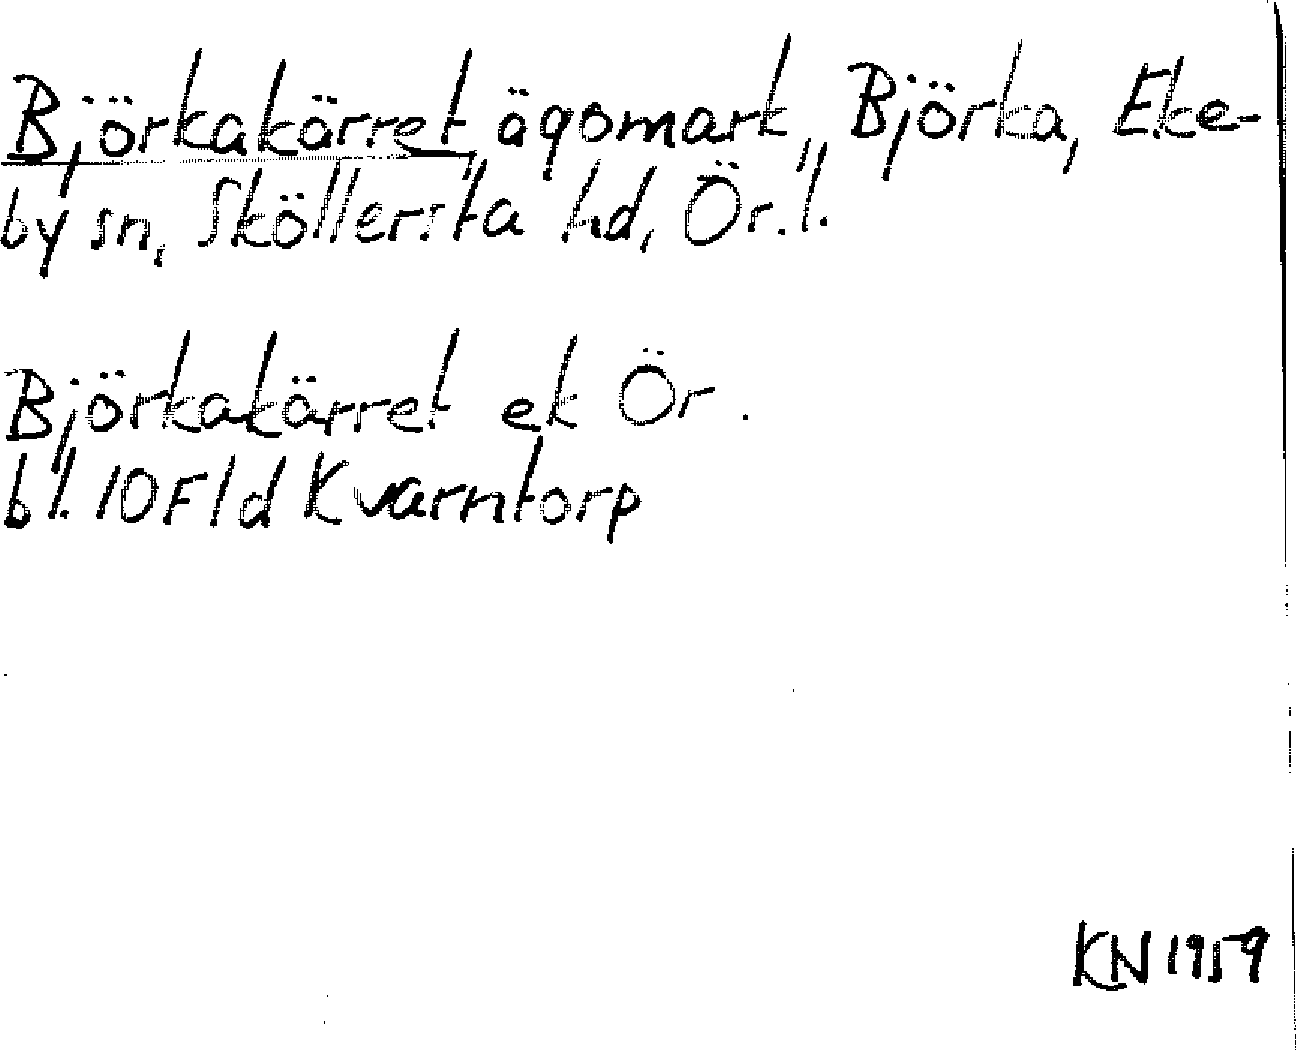 Björkakärret, ägomark, Björka, Eke-
by sn, Sköllersta hd, Ör. l.
Björkakärret ek Ör.
bl. 10F1d Kvarntorp
KN 1959